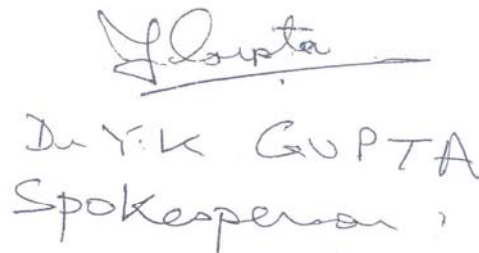 YGupta
Dr Y.K GUPTA
Spokesperson,